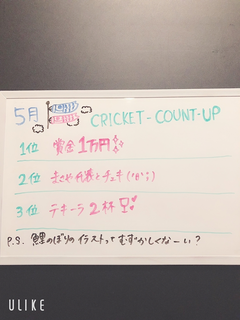 5月 CRICKET-COUNT-UP
1位 賞金1万円
2位 まさや代表とチェキ
3位 テキーラ2杯
P.S. 鯉のぼりのイラストってむずかしくなーい?
ULIKE